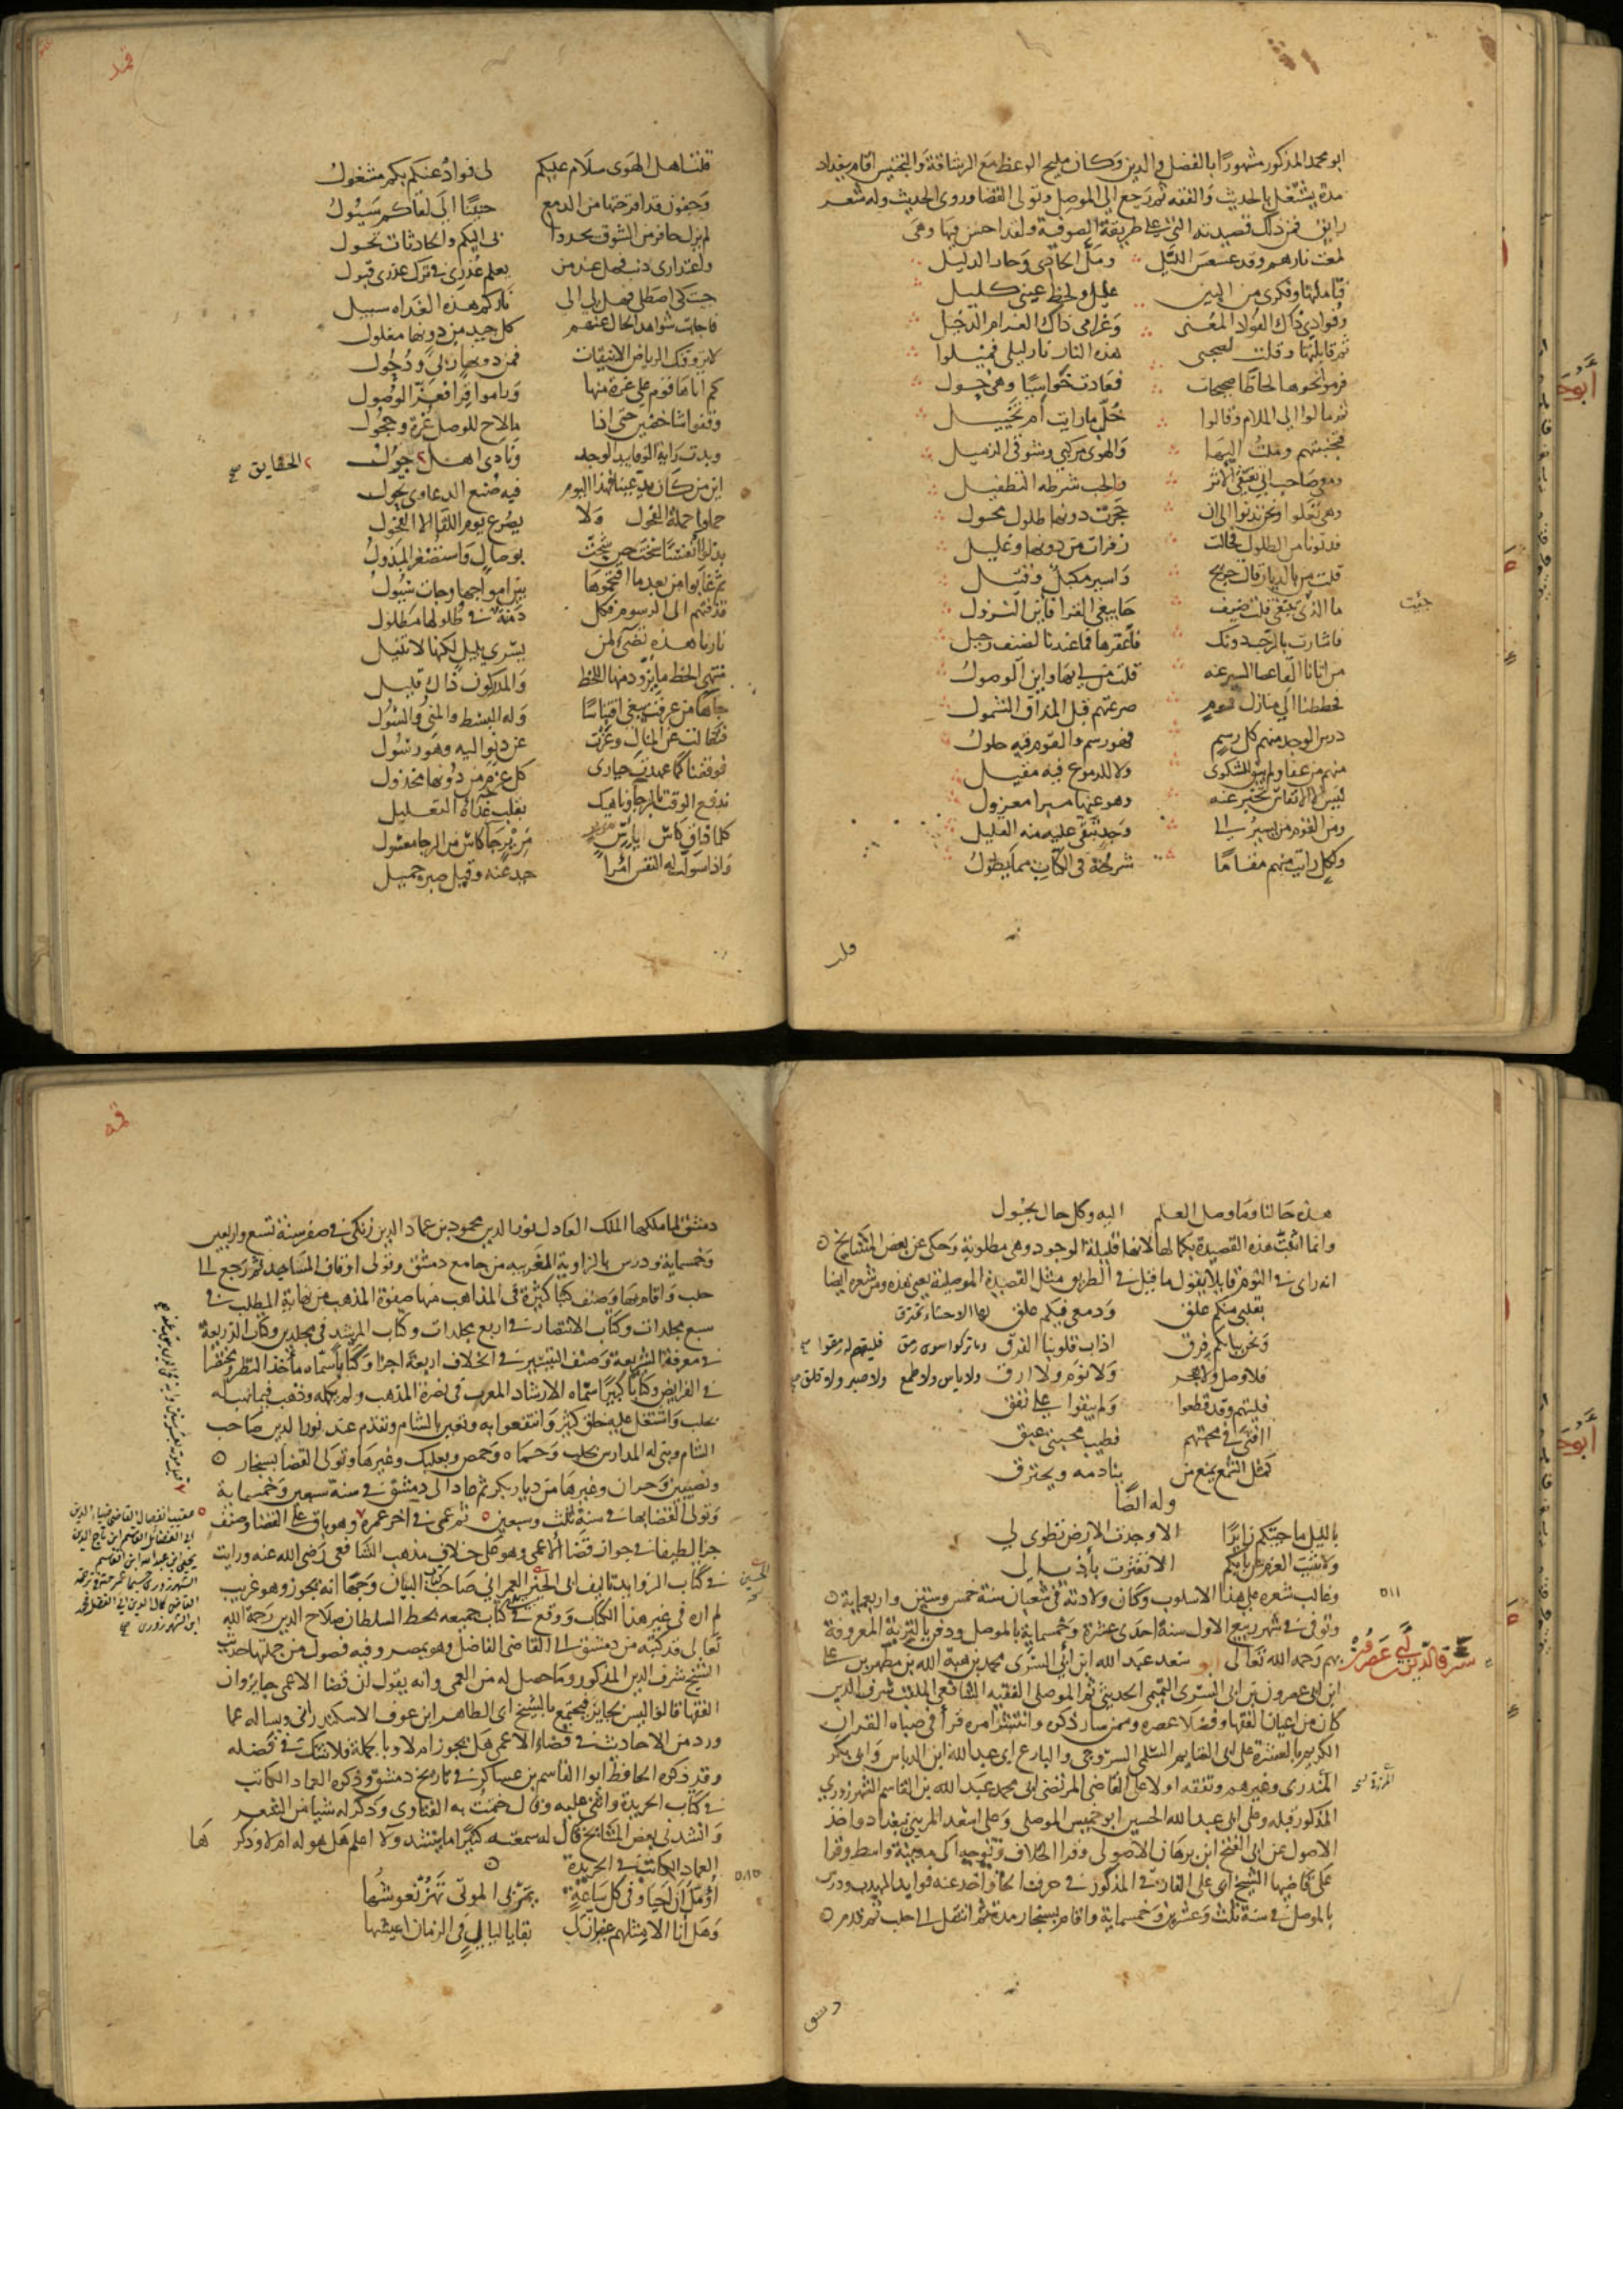 ابو محمد المذكور مشهورًا بالفضل والدين وكان مليح الوعظ مع الرشاقة والتجنيس اقام ببغداد
مدة يشتغل بالحديث والفقه ثم رجع الى الموصل وتولى القضا وروى الحديث وله شعر
رايق فمن ذلك قصيدته التي على طريقة الصوفية ولقد احسن فيها وهي
لمعت نارهم وقد عسعس الليل ومل الحادي وحار الدليل
فتاملتها وفكري من البين عليل ولحظ عيني كليل
وفوادي ذاك الفواد المعنى وغرامي ذاك الغرام الدخيل
ثم قابلتها وقلت لصحبي هذه النار نار ليلى فميلوا
فرموا نحوها لحاظًا صحيحات فعادت خواسيًا وهي حول
ثم مالوا الى الملام وقالوا خلب ما رايت ام تخييل
فتجنبتهم وملت اليها والهوى مركبي وشوقي الزميل
ومعي صاحب اتى يقتفي الاثر والحب شرطه التطفيل
وهي تعلوا ونحن ندنوا الى ان حجزت دونها طلول محول
فدنونا من الطلول فحالت زفرات من دونها وغليل
قلت من بالديار قالت جريح واسير مكبل وقتيل
ما الذي تبتغي قلت ضيف جا يبغي القرا فاين النزول
جئت
فاشارت بالرحب دونك فاعقرها فما عندنا لضيف رحيل
من اتانا القا عصا السير عنه قلت من لي بها واين الوصول
فحططنا الى منازل قوم صرعتهم قبل المذاق الشمول
درس الوجد منهم كل رسم فهو رسم والقوم فيه حلول
منهم من عفا ولم يبق للشكوى ولا للدموع فيه مقيل
ليس الا الانفاس تخبر عنه وهو عنها مبرا معزول
ومن القوم من يسير الى وجد تبقى عليه منه القليل
ولكل رايت منهم مقامًا شرحه في الكتاب مما يطول
قلت
قلت اهل الهوى سلام عليكم لي فواد عنكم بكم مشغول
وجفون قد اقرحتها من الدمع حثيثًا الى لقاكم سيول
لم يزل حافز من الشوق يحدوا ني اليكم والحادثات تحول
واعتذاري ذنب فهل عند من يعلم عذري في ترك عذري قبول
جئت كي اصطلي فهل لي الى ناركم هذه الغداه سبيل
فاجابت شواهد الحال عنهم كل حد من دونها مفلول
لا تروقنك الرياض الانيقات فمن دونها ربى ودحول
كم اتاها قوم على غرة منها وراموا قرا فعز الوصول
وقفوا شاخصين حتى اذا ما لاح للوصل غرة وحجول
وبدت راية الوفا بيد الوجد ونادى اهل ٢ جولوا
٢ الحقايق صح
اين من كان يدعينا فهذا اليوم فيه صنع الدعاوى يحول
حملوا حملة الفحول ولا يصرع يوم اللقا الا الفحول
بذلوا انفسًا سخت حين شحت بوصال واستصغر المبذول
ثم غابوا من بعد ما اقتحموها بين امواجها وجات سيول
قذفتهم الى الرسوم فكل دمنة في طلولها مطلول
نارنا هذه تضي لمن يسري بليل لكنها لا تنيل
منتهى الحظ ما تزود منها اللحظ والمدركون ذاك قليل
جاها من عرفت يبغي اقتباسًا وله البسط والمنى والسول
فتعالت عن المنال وعزت عن دنو اليه وهو رسول
فوقفنا كما عهدت حيارى كل عزم من دونها مخذول
ندفع الوقت بالرجا وناهيك بقلب غذاه التعليل
كلما ذاق كاس ياس مرير جا كاس من الرجا معسول
واذا سولت له النفس امرًا حيد عنه وقيل صبر جميل
هذه حالنا وما وصل العلم اليه وكل حال يحول
وانما اثبت هذه القصيدة بكمالها لانها قليلة الوجود وهي مطلوبة وحكى عن بعض المشايخ
انه راى في النوم قايلا يقول ما قيل في الطريق مثل القصيدة الموصلية يعني هذه ومن شعره ايضا
بقلبي منكم علق ودمعي فيكم علق لها الاحشاء تحترق
ونحن ببابكم فرق اذاب قلوبنا الفرق وما تركوا سوى رمق فليتهم له رمقوا
فلا وصل ولا هجر ولا نوم ولا ارق ولا ياس ولا طمع ولا صبر ولا قلق
فليتهم وقد قطعوا ولم يبقوا على نفق
اافنى في محبتهم فطيب محبتي عبق
كمثل الشمع يمتع من ينادمه ويحترق
وله ايضًا
يا ليل ما جيتكم زايرًا الا وجدت الارض تطوى لي
ولا ثنيت العزم عن بابكم الا تعثرت باذيالي
وغالب شعره على هذا الاسلوب وكان ولادته في شعبان سنة خمس وستين واربعماية
٥١١
وتوفى في شهر ربيع الاول سنة احدى عشرة وخمسماية بالموصل ودفن بالتربة المعروفة
بهم رحمه الله تعالى ابو سعد عبد الله ابن ابي السري محمد بن هبة الله بن مطهر بن علي
شرف الدين بن ابي عصرون
ابن ابي عصرون بن ابي السري التميمي الحديثي ثم الموصلي الفقيه الشافعي الملقب شرف الدين
كان من اعيان الفقها وفضلا عصره وممن سار ذكره وانتشر امره قرأ في صباه القران
الكريم بالعشرة على ابي الغنايم السلمي السروجي والبارع ابي عبد الله ابن الدباس وابي بكر
وغيرهم وتفقه اولا على القاضي المرتضى ابي محمد عبد الله بن القاسم الشهرزوري
المذكور قبله وعلى ابي عبد الله الحسين ابن خميس الموصلي وعلى اسعد الميهني ببغداد واخذ
الاصول عن ابي الفتح ابن برهان الاصولي وقرا الخلاف وتوجه الى مدينة واسط وقرا
على قاضيها الشيخ ابي علي الفارقي المذكور في حرف الحا واخذ عنه فوايد المهذب ودرس
بالموصل في سنة ثلث وعشرين وخمسماية واقام بسنجار مدة ثم انتقل الى حلب ثم قدم
دمشق
دمشق لما ملكها الملك العادل نور الدين محمود بن عماد الدين زنكي في صفر سنة تسع واربعين
وخمسماية ودرس بالزاوية الغربيه من جامع دمشق وتولى اوقاف المساجد ثم رجع الى
حلب واقام بها وصنف كتبا كثيرة في المذاهب منها صفوة المذهب من نهاية المطلب في
سبع مجلدات وكتاب الانتصار في اربع مجلدات وكتاب المرشد في مجلدين وكتاب الذريعة
في معرفة الشريعة وصنف التيسير في الخلاف اربعة اجزا وكتابا سماه ماخذ النظر ومختصرا
في الفرايض وكتابًا كبيرًا سماه الارشاد المعرب في نصرة المذهب ولم يكمله وذهب فيما نهب له
بحلب واشتغل عليه خلق كثير وانتفعوا به وتعين بالشام وتقدم عند نور الدين صاحب
الشام وبنى له المدارس بحلب وحماه وحمص وبعلبك وغيرها وتولى القضا بسنجار
ونصيبين وحران وغيرها من ديار بكر ثم عاد الى دمشق في سنة سبعين وخمسماية
وتولى القضا بها في سنة ثلث وسبعين ثم عمي في اخر عمره وهو باق على القضا وصنف
جزا لطيفا في جواز قضا الاعمى وهو على خلاف مذهب الشافعي رضي الله عنه ورايت
في كتاب الزوايد تاليف ابي الحسين العمراني صاحب كتاب البيان وجهًا انه يجوز وهو غريب
لم اره في غير هذا الكتاب ووقع في كتاب جميعه بخط السلطان صلاح الدين رحمه الله
تعالى قد كتبه من دمشق الى القاضي الفاضل وهو بمصر وفيه فصول من جملتها حديث
الشيخ شرف الدين المذكور وما حصل له من العمى وانه يقول ان قضا الاعمى جايز وان
الفقها قالوا ليس بجايز فتجتمع بالشيخ ابي الطاهر ابن عوف الاسكندراني وتساله عما
ورد من الاحاديث في قضاء الاعمى هل يجوز ام لا وبالجملة فلا شك في فضله
وقد ذكره الحافظ ابو القاسم بن عساكر في تاريخ دمشق وذكره العماد الكاتب
في كتاب الخريدة واثنى عليه وقال ختمت به الفتاوى وذكر له شيا من الشعر
وانشدني بعض المشايخ قال سمعته كثيرًا ما ينشد ولا اعلم هل هو له ام لا وذكرها
العماد الكاتب في الخريدة
٥٨٥
أؤمل ان احيا وفي كل ساعة يمر بي الموتى تهز نعوشها
وهل انا الا مثلهم غير ان لي بقايا ليال في الزمان اعيشها